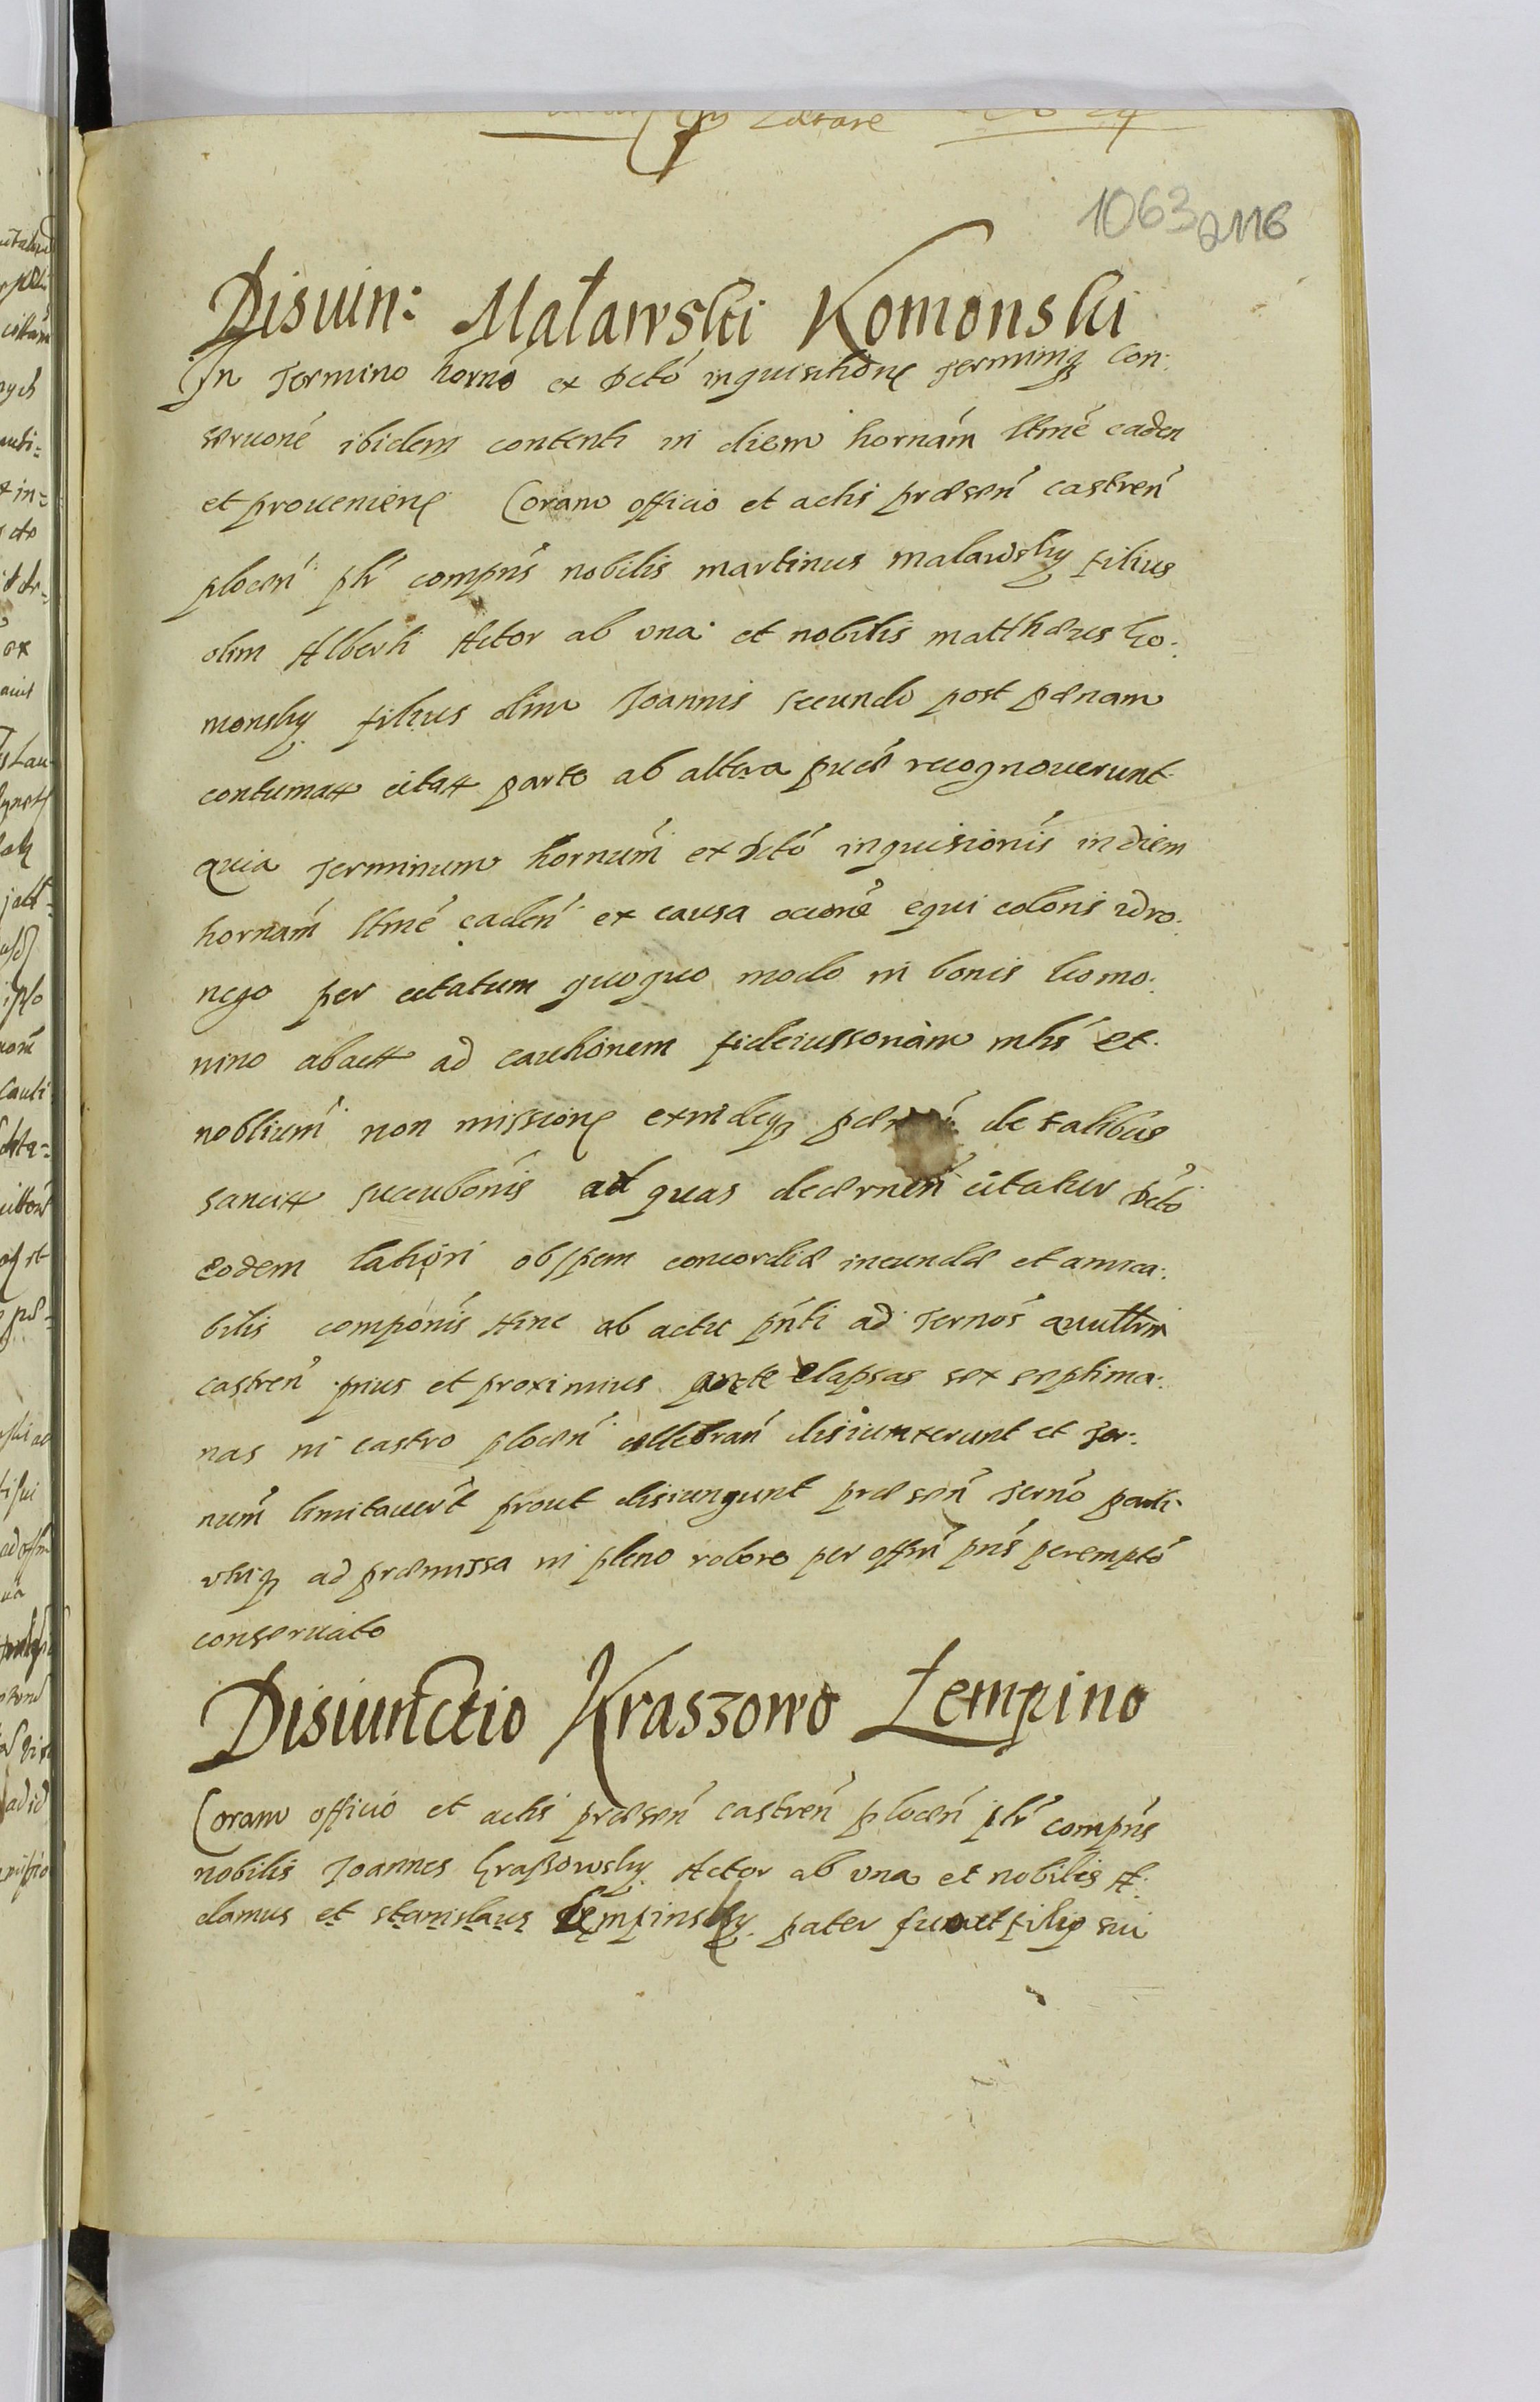 Lætare
1063 2116
Disiuin: Maławski Komonski
In Termino horno ex Dcto inquisitione Terminiq con:
seruone ibidem contenti in diem hornam ltme caden
et prouenien Coram officio et actis præsen castren
plocen plr compns nobilis martinus malawsky filius
olim Alberti Actor ab vna et nobilis matthæus ko:
monsky filius olim Joannis secundo post pænam
contumatt citatt parte ab altera pucæ recognouerunt
quia Terminum hornum ex Dcto inquisionis in diem
hornam ltme caden ex causa ocione equi coloris wro:
nego per citatum quoquo modo in bonis komo:
nino abactt ad cautionem fideiussoriam mlis et
noblium non missione exindeq de talibus
sancitt succubonis ad quas decærnen citatur Dcto
eodem latiori ob spem concordiæ ineundæ et amica:
bilis componis Hinc ab actu pnti ad Ternos
castren prius et proximius post elapsas sex septima:
nas in castro plocen cellebran disiunxerunt et Ter:
num limitauert prout disiungunt præsen Terno parti
vtriq ad præmissa in pleno robore per offm pns perempto
conseruato
Disiunctio Kraszowo Łempino
Coram officio et actis præsen castren plocen plr compns
nobilis Joannes kraßowsky Actor ab vna et nobiles A:
damus et stanislaus Lempinsky pater suo et filiq sui